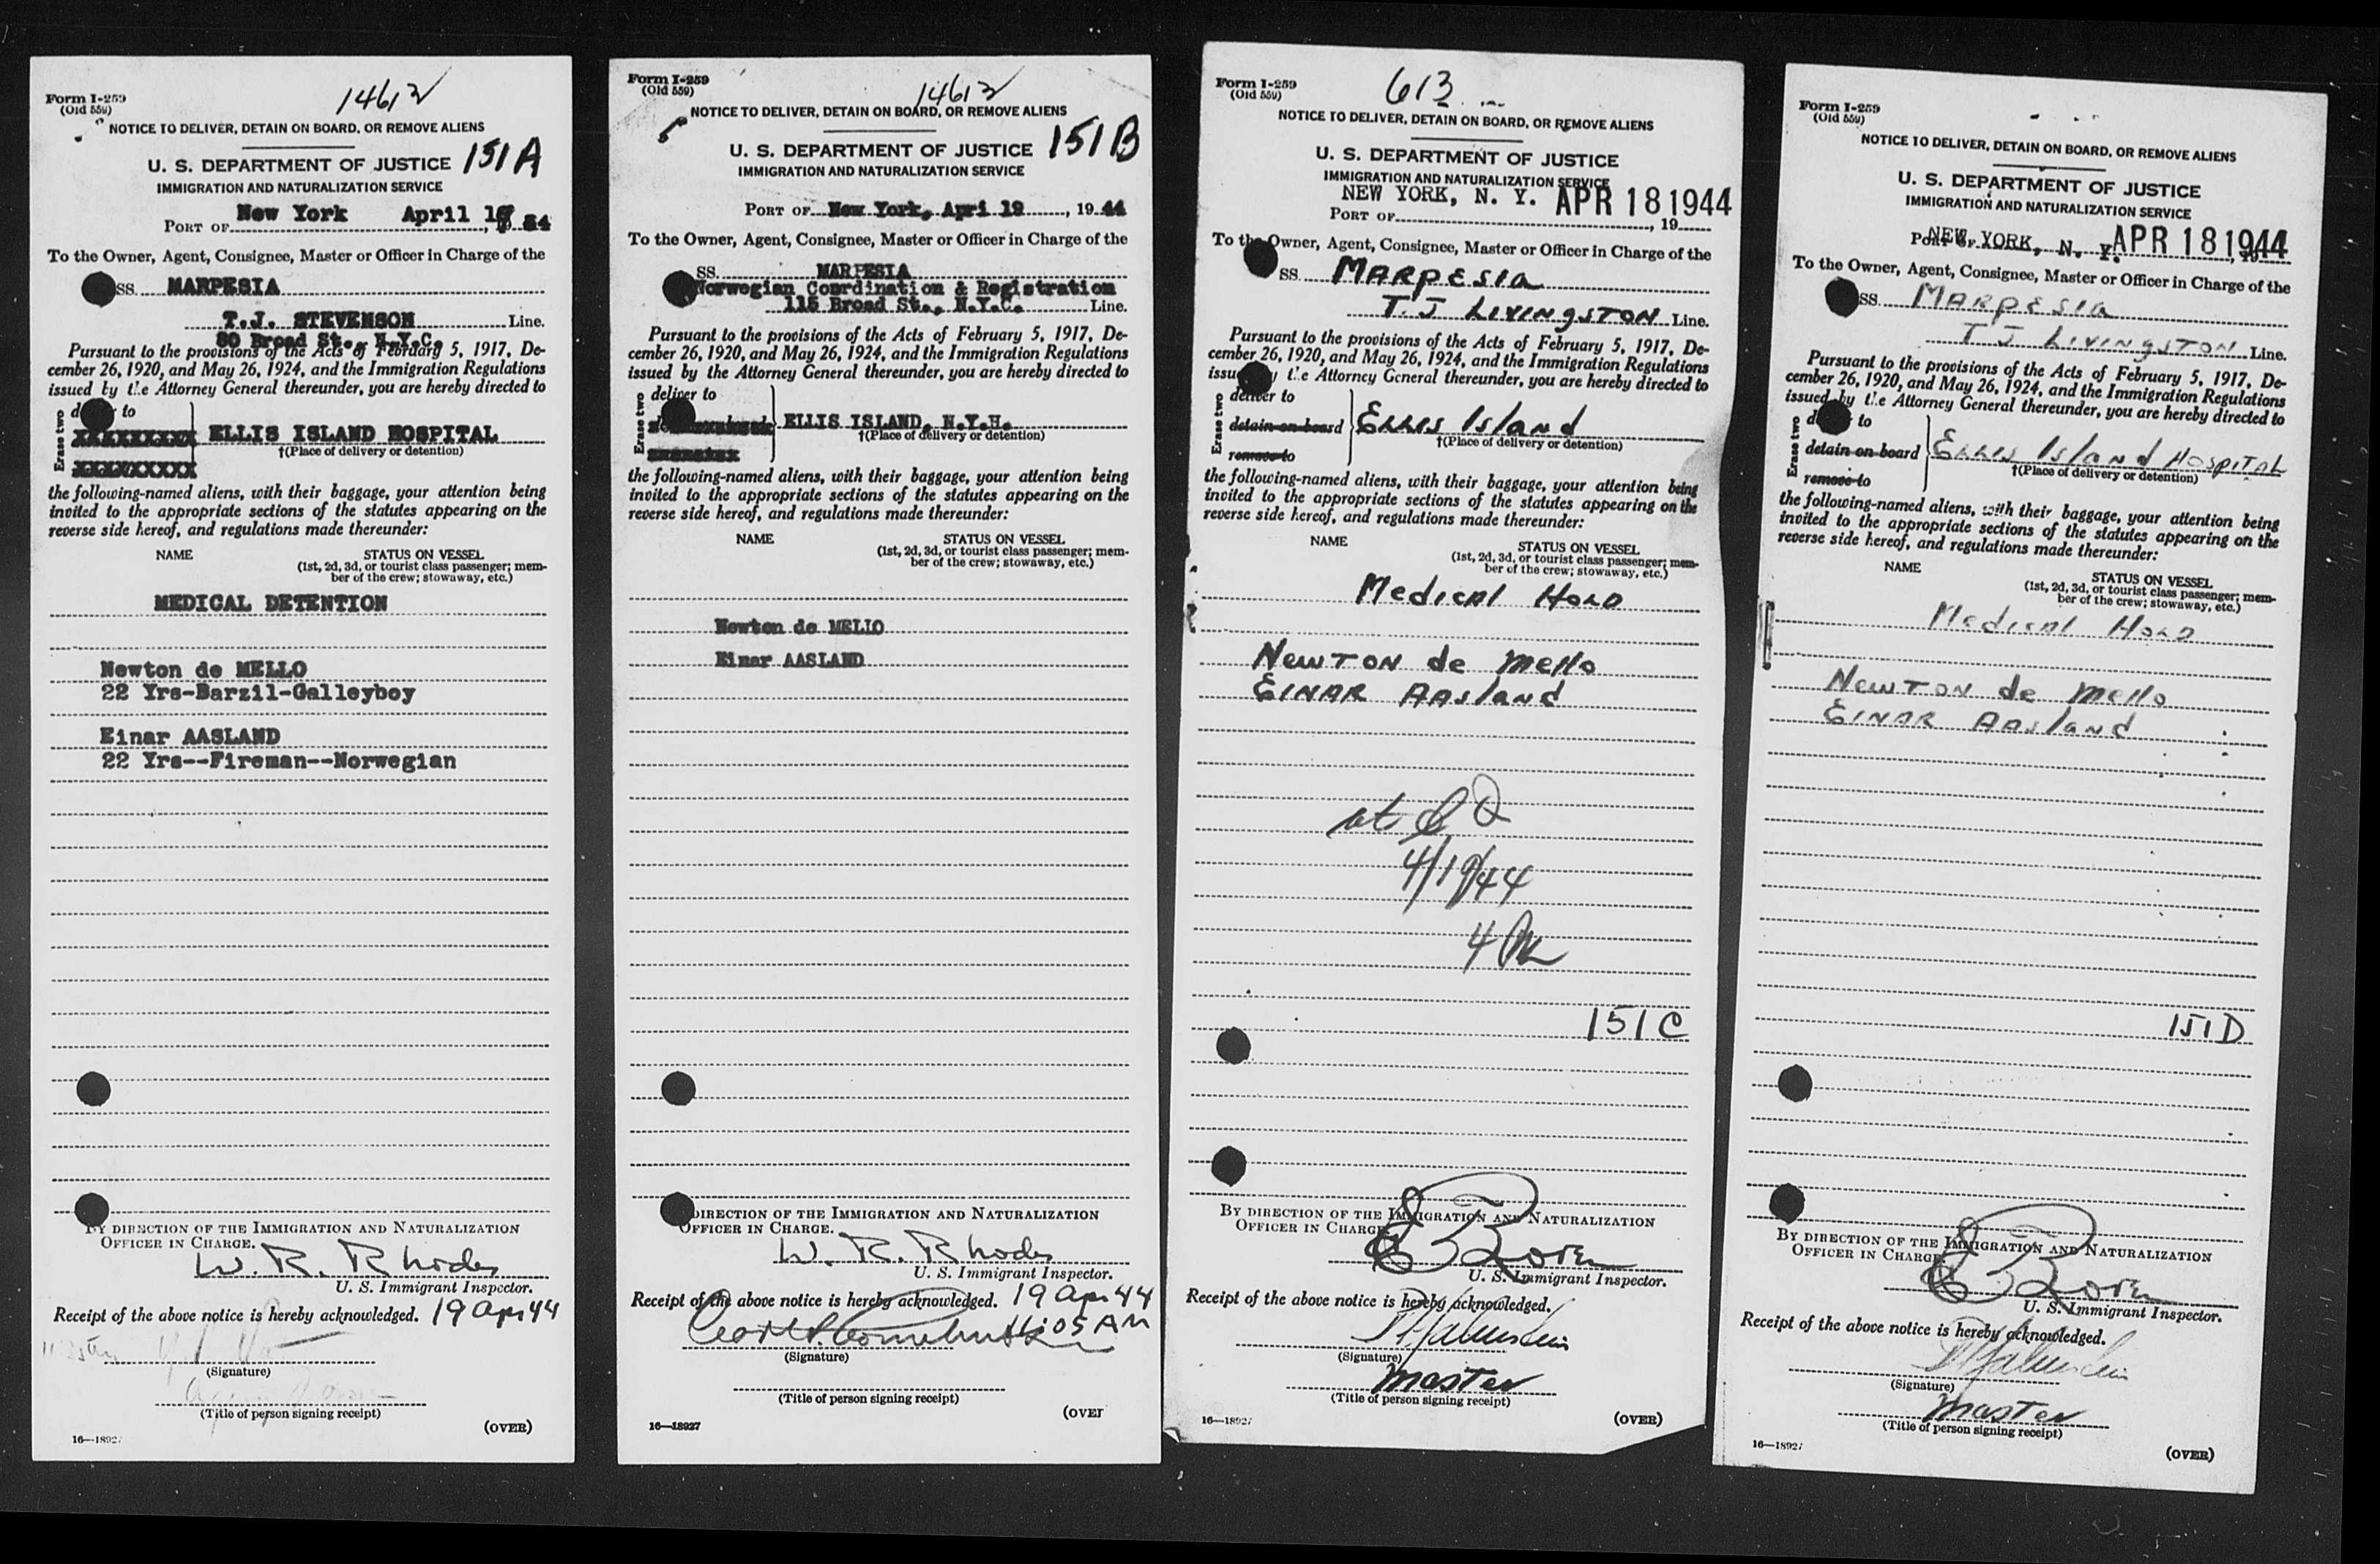 Form I-259
(Old 559)
14612
NOTICE TO DELIVER, DETAIN ON BOARD, OR REMOVE ALIENS
U. S. DEPARTMENT OF JUSTICE 151A
IMMIGRATION AND NATURALIZATION SERVICE
PORT OF New York April
To the Owner, Agent, Consignee, Master or Officer in Charge of the
SS. MARPESIA
T.J. STEVENSON Line.
80 Broad St., N.Y.C.
Pursuant to the provisions of the Acts of February 5, 1917, De-
cember 26, 1920, and May 26, 1924, and the Immigration Regulations
issued by the Attorney General thereunder, you are hereby directed to
Erase two
to
XXXXXXXXX ELLIS ISLAND HOSPITAL
†(Place of delivery or detention)
XXXXXXXXX
the following-named aliens, with their baggage, your attention being
invited to the appropriate sections of the statutes appearing on the
reverse side hereof, and regulations made thereunder:
NAME STATUS ON VESSEL
(1st, 2d, 3d, or tourist class passenger; mem-
ber of the crew; stowaway, etc.)
MEDICAL DETENTION
Newton de MELLO
22 Yrs-Barzil-Galleyboy
Einar AASLAND
22 Yrs--Fireman--Norwegian
BY DIRECTION OF THE IMMIGRATION AND NATURALIZATION
OFFICER IN CHARGE.
W. R. Rhodes
U. S. Immigrant Inspector.
Receipt of the above notice is hereby acknowledged. 19 Apr 44
(Signature)
(Title of person signing receipt)
(OVER)
16—18927
Form I-259
(Old 559)
14612
NOTICE TO DELIVER, DETAIN ON BOARD, OR REMOVE ALIENS
U. S. DEPARTMENT OF JUSTICE 151B
IMMIGRATION AND NATURALIZATION SERVICE
PORT OF New York, Apri 19, 1944
To the Owner, Agent, Consignee, Master or Officer in Charge of the
SS. MARPESIA
Norwegian Coordination & Registration
115 Broad St., N.Y.C. Line.
Pursuant to the provisions of the Acts of February 5, 1917, De-
cember 26, 1920, and May 26, 1924, and the Immigration Regulations
issued by the Attorney General thereunder, you are hereby directed to
Erase two
deliver to
ELLIS ISLAND, N.Y.H.
†(Place of delivery or detention)
the following-named aliens, with their baggage, your attention being
invited to the appropriate sections of the statutes appearing on the
reverse side hereof, and regulations made thereunder:
NAME STATUS ON VESSEL
(1st, 2d, 3d, or tourist class passenger; mem-
ber of the crew; stowaway, etc.)
Newton de MELLO
Einar AASLAND
DIRECTION OF THE IMMIGRATION AND NATURALIZATION
OFFICER IN CHARGE.
W. R. Rhodes
U. S. Immigrant Inspector.
Receipt of the above notice is hereby acknowledged. 19 Apr 44
11:05 AM
(Signature)
(Title of person signing receipt)
(OVER
16—18927
Form I-259
(Old 559)
613
NOTICE TO DELIVER, DETAIN ON BOARD, OR REMOVE ALIENS
U. S. DEPARTMENT OF JUSTICE
IMMIGRATION AND NATURALIZATION SERVICE
NEW YORK, N. Y. APR 18 1944
PORT OF , 19
To the Owner, Agent, Consignee, Master or Officer in Charge of the
SS. MARPESIA
T. J LIVINGSTON Line.
Pursuant to the provisions of the Acts of February 5, 1917, De-
cember 26, 1920, and May 26, 1924, and the Immigration Regulations
issued by the Attorney General thereunder, you are hereby directed to
Erase two
deliver to
detain on board ELLIS Island
†(Place of delivery or detention)
remove to
the following-named aliens, with their baggage, your attention being
invited to the appropriate sections of the statutes appearing on the
reverse side hereof, and regulations made thereunder:
NAME STATUS ON VESSEL
(1st, 2d, 3d, or tourist class passenger; mem-
ber of the crew; stowaway, etc.)
Medical HOLD
NEWTON de Mello
EINAR AAsland
at
4/19/44
4 PM
151C
BY DIRECTION OF THE IMMIGRATION AND NATURALIZATION
OFFICER IN CHARGE
U. S. Immigrant Inspector.
Receipt of the above notice is hereby acknowledged.
(Signature)
Master
(Title of person signing receipt)
16—18927
(OVER)
Form I-259
(Old 559)
NOTICE TO DELIVER, DETAIN ON BOARD, OR REMOVE ALIENS
U. S. DEPARTMENT OF JUSTICE
IMMIGRATION AND NATURALIZATION SERVICE
PORT OF NEW YORK, N. Y. APR 18 1944
To the Owner, Agent, Consignee, Master or Officer in Charge of the
SS. MARPESIA
T J LIVINGSTON Line.
Pursuant to the provisions of the Acts of February 5, 1917, De-
cember 26, 1920, and May 26, 1924, and the Immigration Regulations
issued by the Attorney General thereunder, you are hereby directed to
Erase two
to
detain on board ELLIS Island HospITAL
†(Place of delivery or detention)
remove to
the following-named aliens, with their baggage, your attention being
invited to the appropriate sections of the statutes appearing on the
reverse side hereof, and regulations made thereunder:
NAME STATUS ON VESSEL
(1st, 2d, 3d, or tourist class passenger; mem-
ber of the crew; stowaway, etc.)
Medical HOLD
NEWTON de Mello
EINAR AAsland
151D
BY DIRECTION OF THE IMMIGRATION AND NATURALIZATION
OFFICER IN CHARGE
U. S. Immigrant Inspector.
Receipt of the above notice is hereby acknowledged.
(Signature)
Master
(Title of person signing receipt)
16—18927
(OVER)